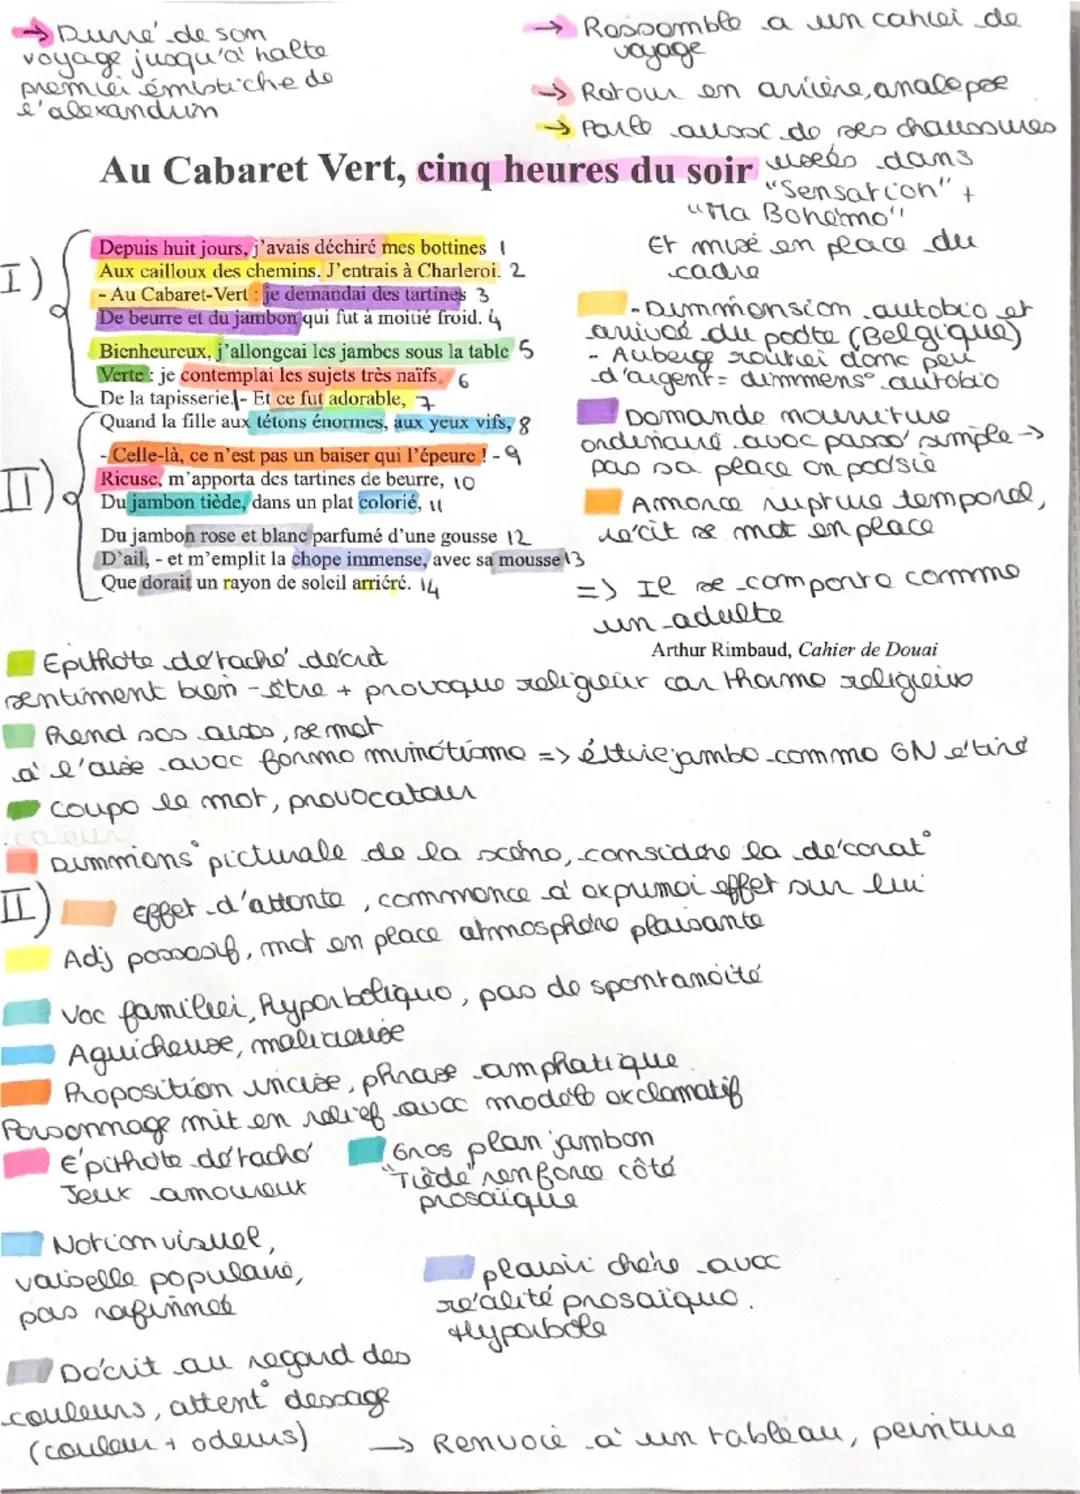 → Durré de son
voyage jusqu'à halte
premier émistiche de
l'alexandrin
→ Rassemble a un cahier de
voyage
→ Retour en arrière, analepse
→ Parle aussi de ses chaussures
usées dans
"Sensation" +
"Ma Bohème"
Et mise en place du
cadre
Au Cabaret Vert, cinq heures du soir
I)
Depuis huit jours, j'avais déchiré mes bottines 1
Aux cailloux des chemins. J'entrais à Charleroi. 2
- Au Cabaret-Vert : je demandai des tartines 3
De beurre et du jambon qui fut à moitié froid. 4
Bienheureux, j'allongeai les jambes sous la table 5
Verte : je contemplai les sujets très naïfs 6
De la tapisserie. - Et ce fut adorable, 7
II)
Quand la fille aux tétons énormes, aux yeux vifs, 8
- Celle-là, ce n'est pas un baiser qui l'épeure ! - 9
Rieuse, m'apporta des tartines de beurre, 10
Du jambon tiède, dans un plat colorié, 11
Du jambon rose et blanc parfumé d'une gousse 12
D'ail, - et m'emplit la chope immense, avec sa mousse 13
Que dorait un rayon de soleil arriéré. 14
- Dimmension autobio et
arivée du poète (Belgique)
- Auberge routier donc peu
d'argent = dimmens° autobio
Demande nourriture
ordinaire avec passé simple →
pas sa place en poésie
Annonce rupture temporel,
récit se met en place
=> Il se comporte comme
un adulte
Arthur Rimbaud, Cahier de Douai
Epithète détaché décrit
sentiment bien-être + provoque religieux car thème religieux
Prend ses aises, se met
à l'aise avec
=> étire jambe comme GN étiré
Coupe le mot, provocateur
Dimmens° picturale de la scène, considère la décorat°
II)
Effet d'attente, commence à exprimer effet sur lui
Adj possesif, met en place atmosphère plaisante
Voc familier, hyperbolique, pas de spontanéité
Aguicheuse, malicieuse
Proposition incise, phrase emphatique
Personnage mit en relief avec modalité exclamatif
Epithète détaché
Jeux amoureux
Gros plan jambon
"Tiède" renforce côté
prosaïque
Notion visuel,
vaiselle populaire,
pas rafinnée
plaisir chère avec
réalité prosaïque.
Hyperbole
Décrit au regard des
couleurs, attent°
(couleur + odeurs)
→ Renvoie à un tableau, peinture